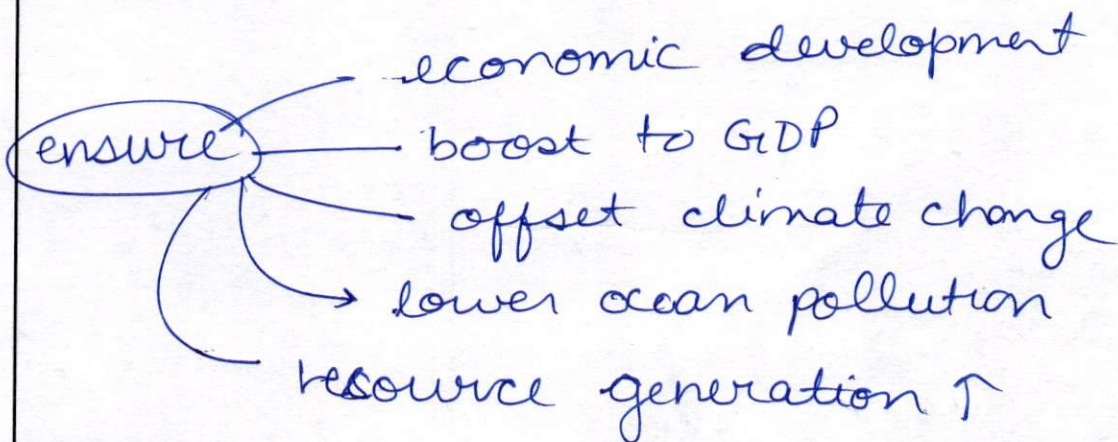 economic development
ensure
boost to GDP
offset climate change
lower ocean pollution
resource generation ↑